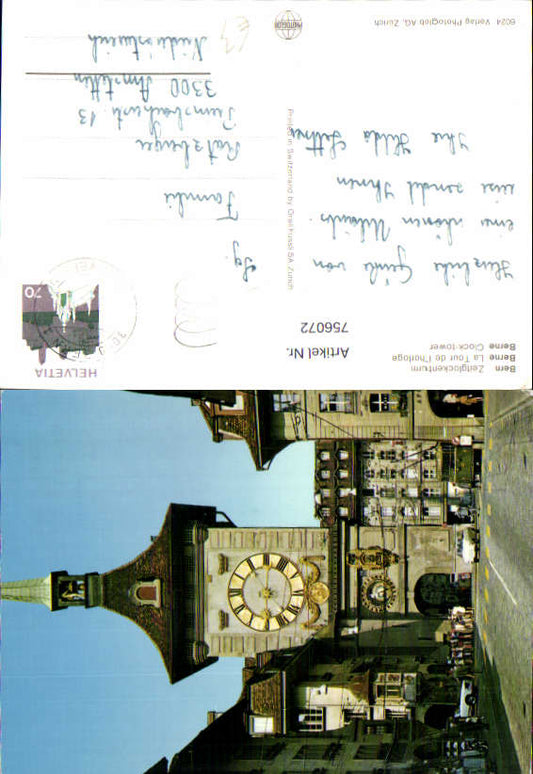 Bern Zeitglockenturm
Berne La Tour de l'horloge
Berne Clock-tower
Artikel Nr.
756072
HELVETIA
70
Herzliche Grüße von
einer schönen
reise sendet Ihnen
Ihre Hilda
Fg.
Familie
3300 Amstetten
Niederösterreich
Printed in Switzerland by Orell Füssli SA Zürich
PHOTOGLOB
6024 Verlag Photoglob AG, Zürich